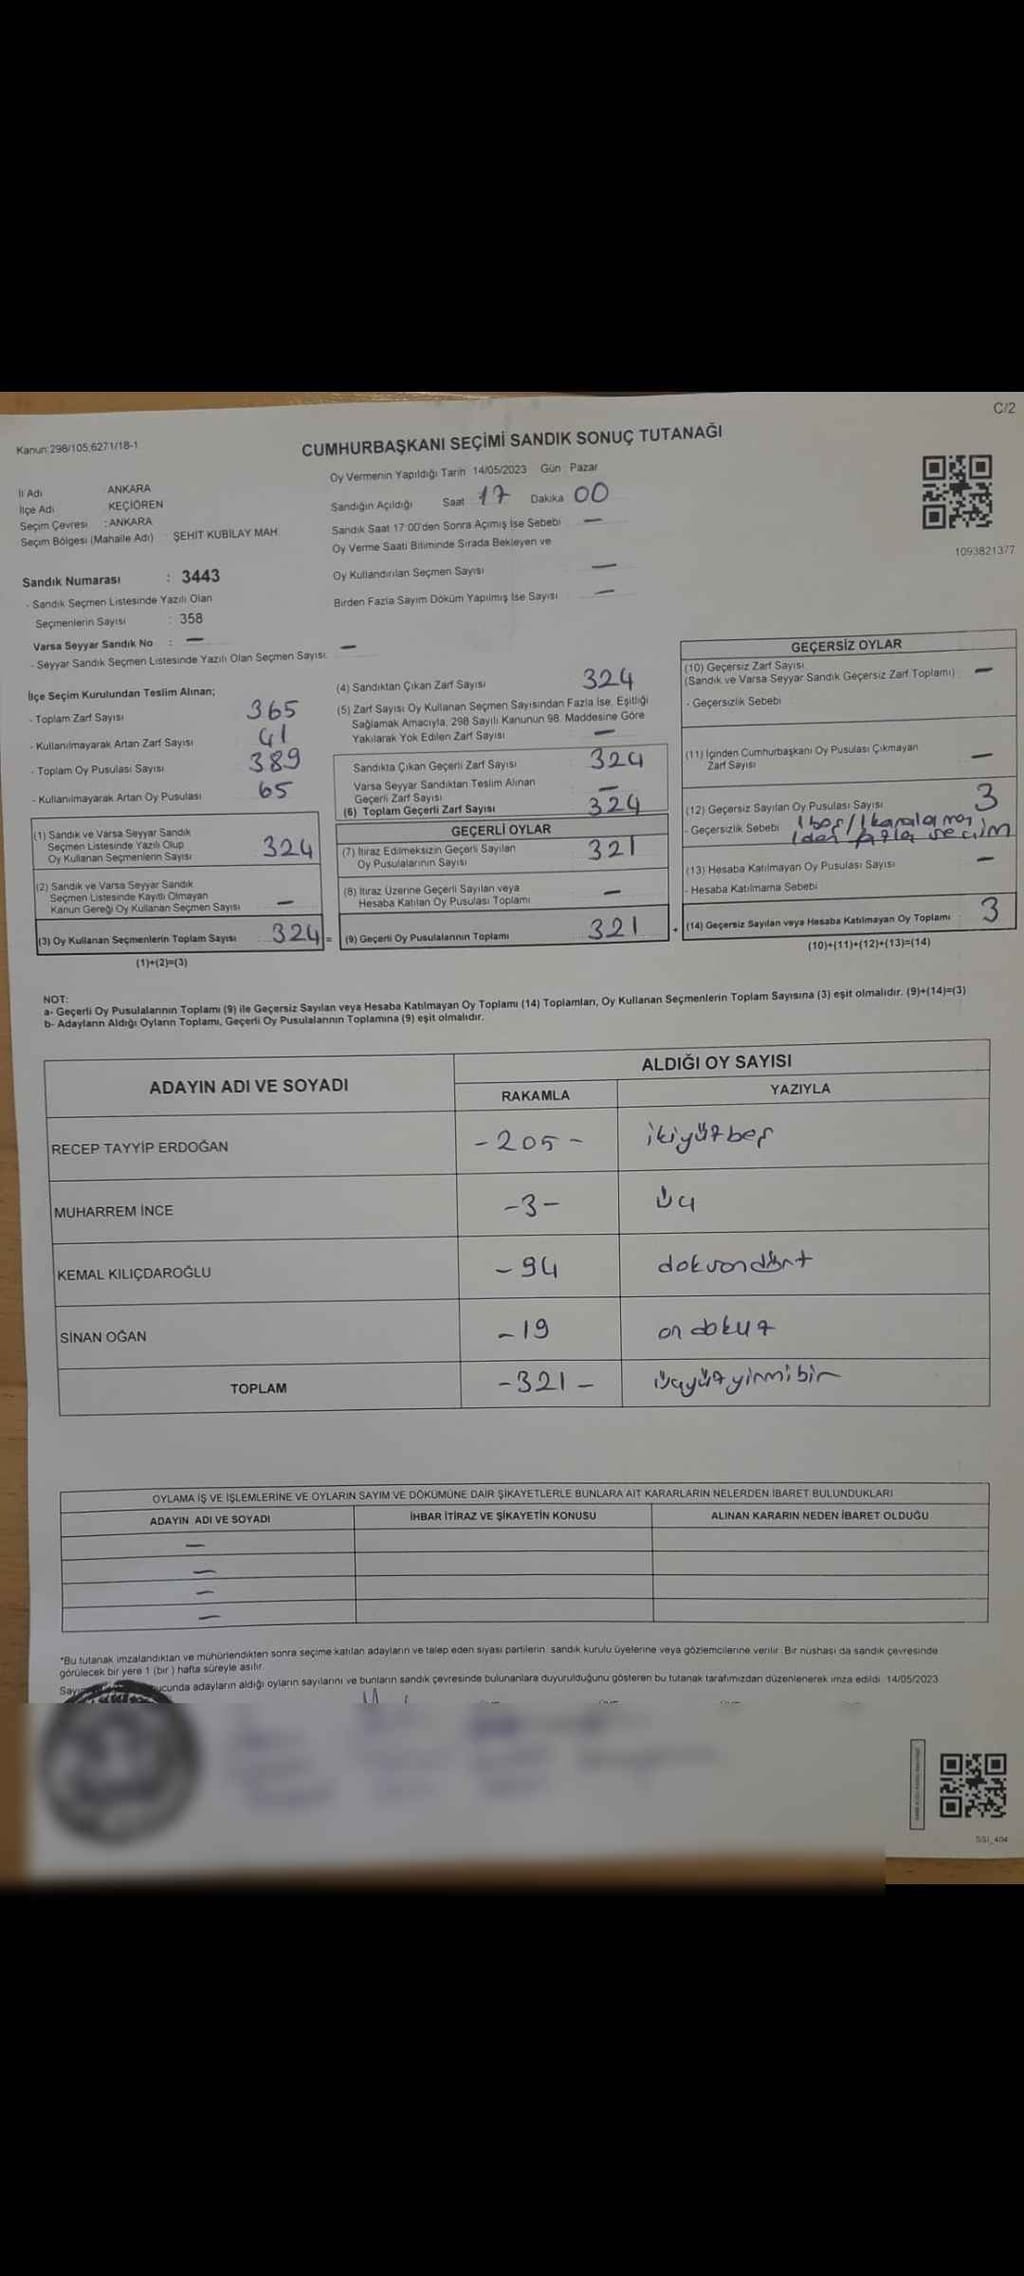 C/2
Kanun:298/105,6271/18-1
CUMHURBAŞKANI SEÇİMİ SANDIK SONUÇ TUTANAĞI
Oy Vermenin Yapıldığı Tarih 14/05/2023 Gün : Pazar
İl Adı : ANKARA
İlçe Adı : KEÇİÖREN
Seçim Çevresi : ANKARA
Seçim Bölgesi (Mahalle Adı) : ŞEHİT KUBİLAY MAH.
Sandığın Açıldığı Saat 17 Dakika 00
Sandık Saat 17:00'den Sonra Açımış İse Sebebi —
Oy Verme Saati Bitiminde Sırada Bekleyen ve
Oy Kullandırılan Seçmen Sayısı —
Birden Fazla Sayım Döküm Yapılmış İse Sayısı —
1093821377
Sandık Numarası : 3443
- Sandık Seçmen Listesinde Yazılı Olan
Seçmenlerin Sayısı : 358
Varsa Seyyar Sandık No : —
- Seyyar Sandık Seçmen Listesinde Yazılı Olan Seçmen Sayısı: —
İlçe Seçim Kurulundan Teslim Alınan;
- Toplam Zarf Sayısı 365
- Kullanılmayarak Artan Zarf Sayısı 41
- Toplam Oy Pusulası Sayısı 389
- Kullanılmayarak Artan Oy Pusulası 65
(1) Sandık ve Varsa Seyyar Sandık
Seçmen Listesinde Yazılı Olup
Oy Kullanan Seçmenlerin Sayısı 324
(2) Sandık ve Varsa Seyyar Sandık
Seçmen Listesinde Kayıtlı Olmayan
Kanun Gereği Oy Kullanan Seçmen Sayısı —
(3) Oy Kullanan Seçmenlerin Toplam Sayısı 324 =
(1)+(2)=(3)
(4) Sandıktan Çıkan Zarf Sayısı 324
(5) Zarf Sayısı Oy Kullanan Seçmen Sayısından Fazla İse, Eşitliği
Sağlamak Amacıyla, 298 Sayılı Kanunun 98. Maddesine Göre
Yakılarak Yok Edilen Zarf Sayısı —
Sandıkta Çıkan Geçerli Zarf Sayısı 324
Varsa Seyyar Sandıktan Teslim Alınan
Geçerli Zarf Sayısı —
(6) Toplam Geçerli Zarf Sayısı 324
GEÇERLİ OYLAR
(7) İtiraz Edilmeksizin Geçerli Sayılan
Oy Pusulalarının Sayısı 321
(8) İtiraz Üzerine Geçerli Sayılan veya
Hesaba Katılan Oy Pusulası Toplamı —
(9) Geçerli Oy Pusulalarının Toplamı 321 +
GEÇERSİZ OYLAR
(10) Geçersiz Zarf Sayısı
(Sandık ve Varsa Seyyar Sandık Geçersiz Zarf Toplamı) —
- Geçersizlik Sebebi
(11) İçinden Cumhurbaşkanı Oy Pusulası Çıkmayan
Zarf Sayısı —
(12) Geçersiz Sayılan Oy Pusulası Sayısı 3
- Geçersizlik Sebebi 1 boş / 1 karalama,
1 den fazla seçim
(13) Hesaba Katılmayan Oy Pusulası Sayısı —
- Hesaba Katılmama Sebebi
(14) Geçersiz Sayılan veya Hesaba Katılmayan Oy Toplamı 3
(10)+(11)+(12)+(13)=(14)
NOT:
a- Geçerli Oy Pusulalarının Toplamı (9) ile Geçersiz Sayılan veya Hesaba Katılmayan Oy Toplamı (14) Toplamları, Oy Kullanan Seçmenlerin Toplam Sayısına (3) eşit olmalıdır. (9)+(14)=(3)
b- Adayların Aldığı Oyların Toplamı, Geçerli Oy Pusulalarının Toplamına (9) eşit olmalıdır.
ADAYIN ADI VE SOYADI ALDIĞI OY SAYISI
RAKAMLA YAZIYLA
RECEP TAYYİP ERDOĞAN -205- ikiyüzbeş
MUHARREM İNCE -3- üç
KEMAL KILIÇDAROĞLU -94 doksandört
SİNAN OĞAN -19 on dokuz
TOPLAM -321- üçyüzyirmibir
OYLAMA İŞ VE İŞLEMLERİNE VE OYLARIN SAYIM VE DÖKÜMÜNE DAİR ŞİKAYETLERLE BUNLARA AİT KARARLARIN NELERDEN İBARET BULUNDUKLARI
ADAYIN ADI VE SOYADI İHBAR İTİRAZ VE ŞİKAYETİN KONUSU ALINAN KARARIN NEDEN İBARET OLDUĞU
—
—
—
—
*Bu tutanak imzalandıktan ve mühürlendikten sonra seçime katılan adayların ve talep eden siyasi partilerin, sandık kurulu üyelerine veya gözlemcilerine verilir. Bir nüshası da sandık çevresinde
görülecek bir yere 1 (bir) hafta süreyle asılır.
ucunda adayların aldığı oyların sayılarını ve bunların sandık çevresinde bulunanlara duyurulduğunu gösteren bu tutanak tarafımızdan düzenlenerek imza edildi. 14/05/2023
SSI_404